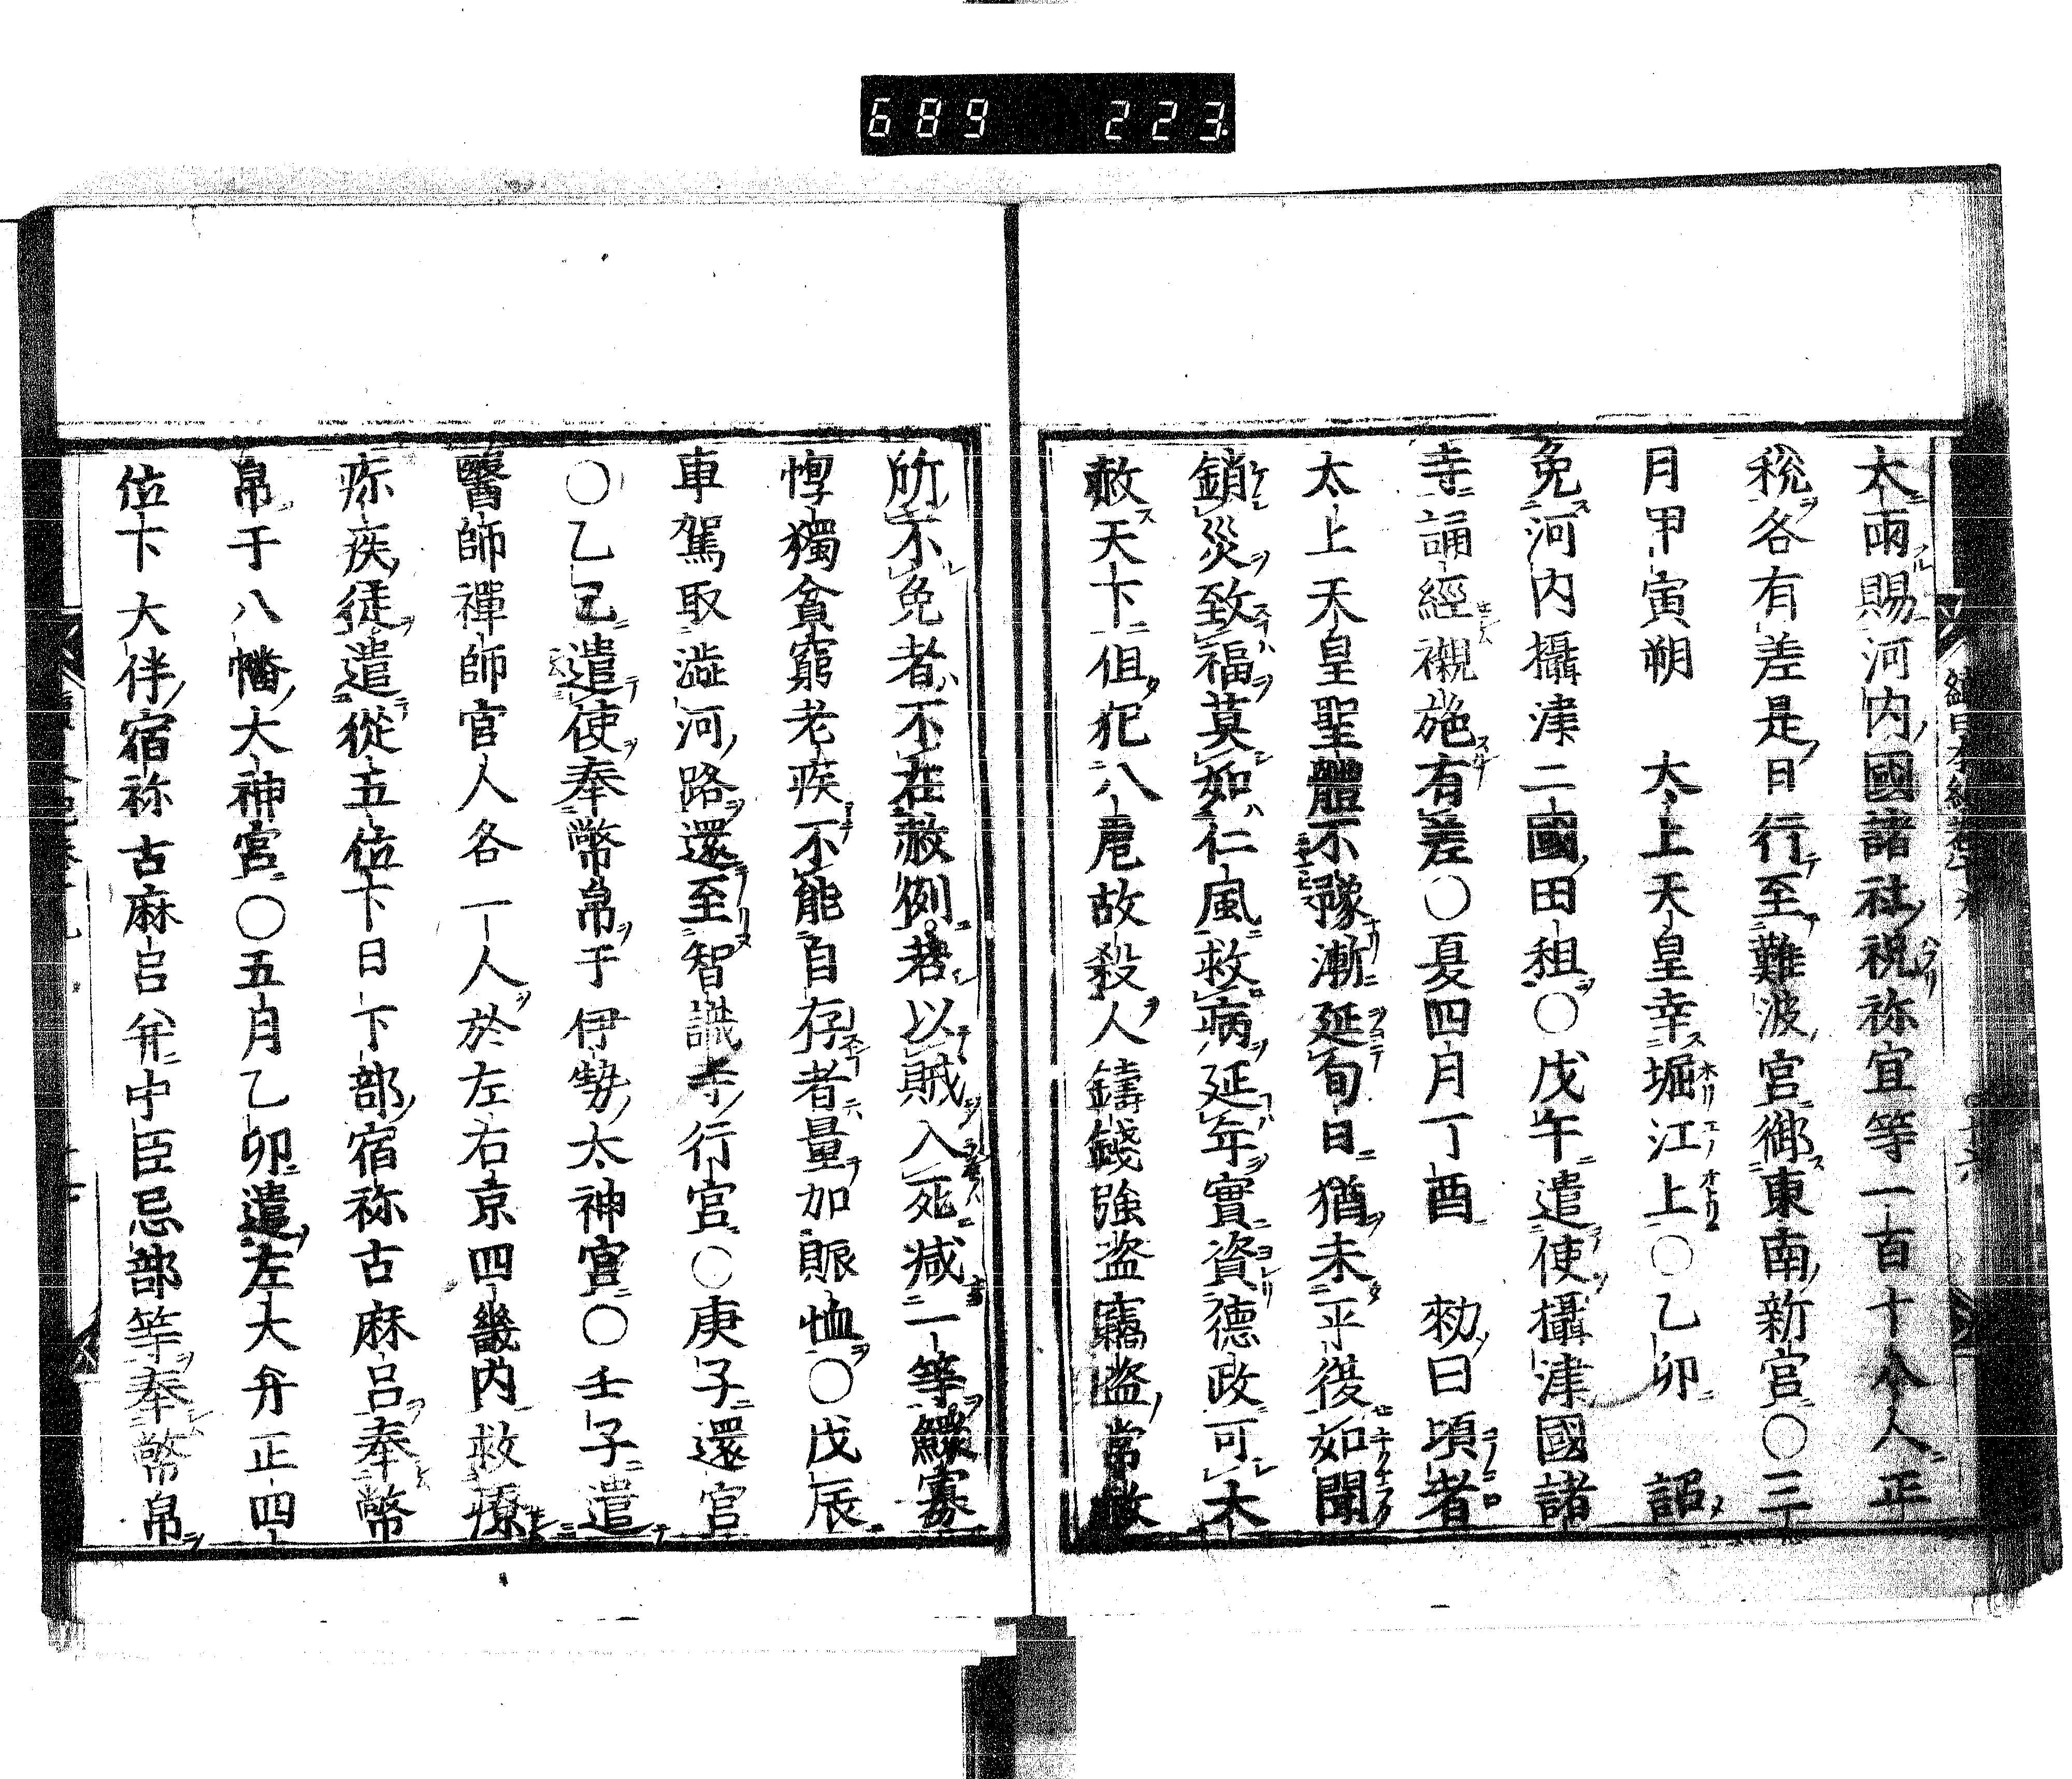 689 223
大雨賜河内國諸社祝祢宜等一百十八人正
税各有差是日行至難波宮御東南新宮〇三
月甲寅朔 太上天皇幸堀江上〇乙卯 詔
免河内攝津二國田租〇戊午遣使攝津國諸
寺誦經襯施有差〇夏四月丁酉 勑曰頃者
太上天皇聖體不豫漸延旬日猶未平復如聞
鎖災致福莫如仁風救病延年實資德政可大
赦天下但犯八虐故殺人鑄錢強盗竊盗常赦
所不免者不在赦例若以贓入死减一等鰥寡
惸獨貧窮老疾不能自存者量加賑恤〇戊辰
車駕取澁河路還至智識寺行宮〇庚子還宮
〇乙巳遣使奉幣帛于伊勢太神宮〇壬子遣
醫師禪師官人各一人於左右京四畿内救療
疹疾徒遣從五位下日下部宿祢古麻呂奉幣
帛于八幡大神宮〇五月乙卯遣左大弁正四
位下大伴宿祢古麻呂并中臣忌部等奉幣帛